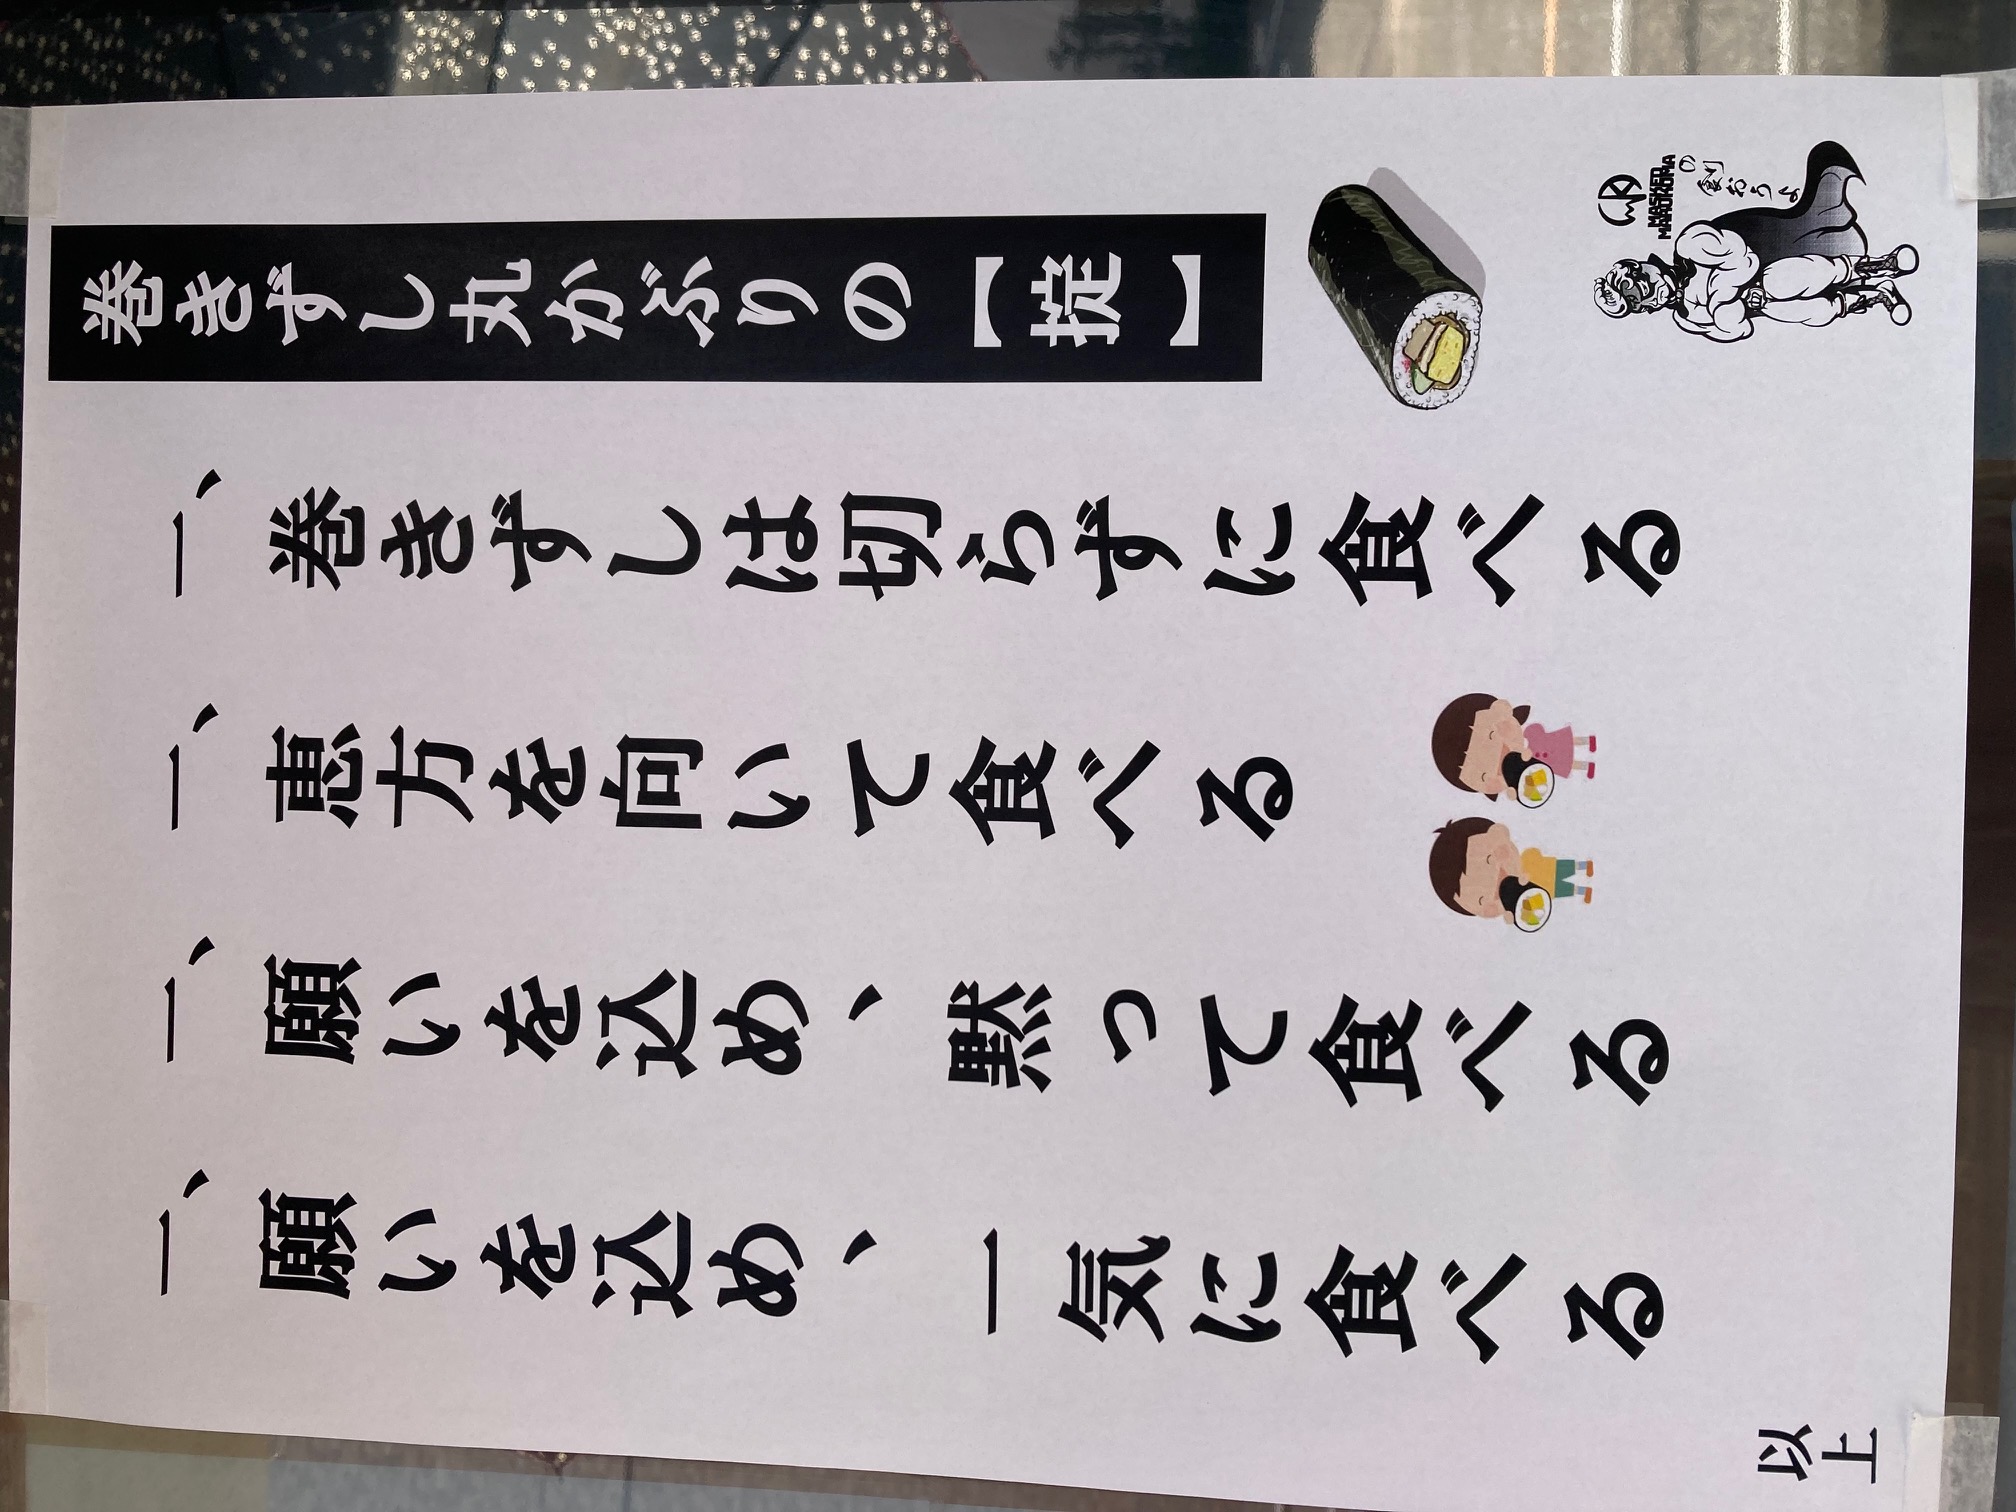 巻きずし丸かぶりの【掟】
一、巻きずしは切らずに食べる
一、恵方を向いて食べる
一、願いを込め、黙って食べる
一、願いを込め、一気に食べる
以上
MASKED
MARUKOMA